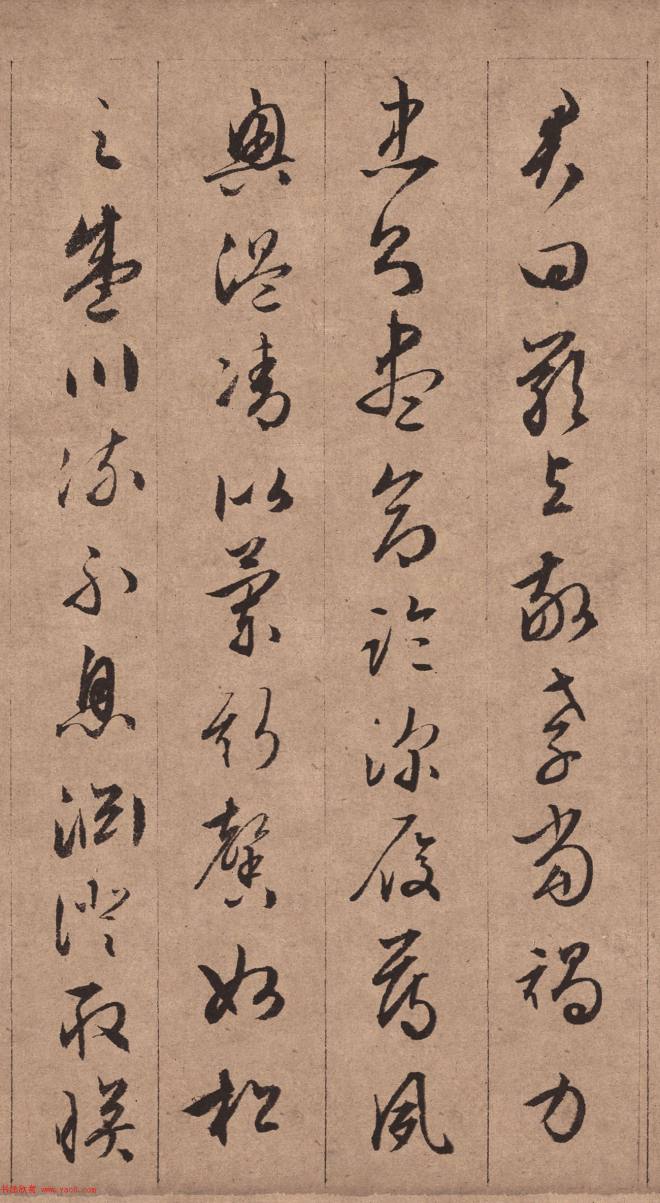 君曰嚴與敬孝當竭力
忠則盡命臨深履薄夙
興溫凊似蘭斯馨如松
之盛川流不息淵澄取暎
书法欣赏 www.yac8.com